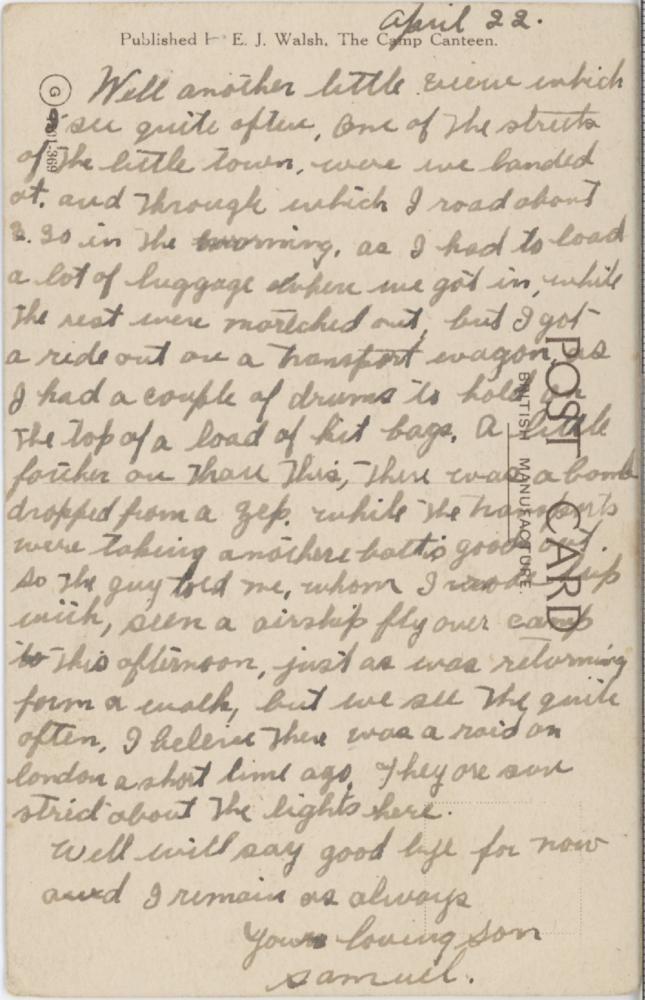 April 22.
Published E. J. Walsh, The Camp Canteen.
Well another little view which
I see quite often, One of the streets
of the little town, were we landed
at. and through which I road about
3.30 in the morning, as I had to load
a lot of luggage where we got in, while
the rest were moreched out, but I got
a ride out on a transport wagon, as
I had a couple of drums to hold on
the top of a load of kit bags. A little
forther on than this, there was a bomb
dropped from a zep. while the transports
were taking anothere goods out.
So the guy toed me, whom I rode up
with, seen a airship fly over camp
to this afternoon, just as was returning
form a walk, but we see the quite
often, I beleive there was a raid on
london a short time ago, They are
strid about the lights here.
Well will say good bye for now
and I remain as always
Your loving son
Samuel.
POST CARD
BRITISH MANUFACTURE.
G